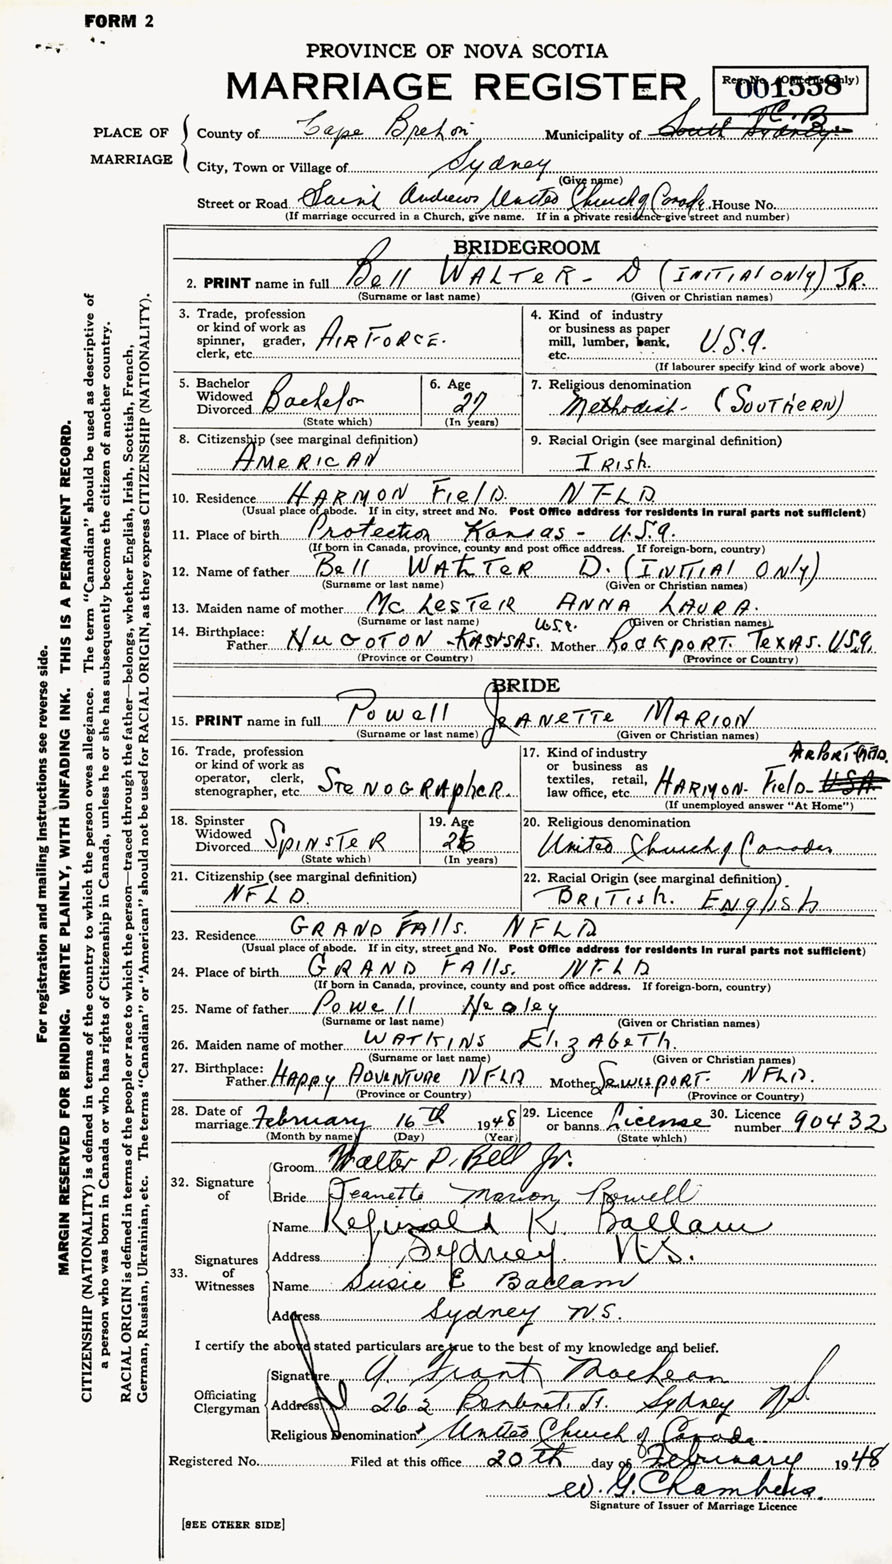 FORM 2
PROVINCE OF NOVA SCOTIA
MARRIAGE REGISTER
Reg. No. (Office use only)
001558
PLACE OF MARRIAGE
County of Cape Breton Municipality of South Sydney C.B
City, Town or Village of Sydney
(Give name)
Street or Road Saint Andrews United Church of Canada. House No.
(If marriage occurred in a Church, give name. If in a private residence give street and number)
BRIDEGROOM
2. PRINT name in full Bell WALTER - D (INITIAL ONLY) JR.
(Surname or last name) (Given or Christian names)
3. Trade, profession or kind of work as spinner, grader, clerk, etc. AIR FORCE.
4. Kind of industry or business as paper mill, lumber, bank, etc. U.S.A.
(If labourer specify kind of work above)
5. Bachelor Widowed Divorced Bachelor
(State which)
6. Age 27
(In years)
7. Religious denomination Methodist - (SOUTHERN)
8. Citizenship (see marginal definition)
AMERICAN
9. Racial Origin (see marginal definition)
IRish.
10. Residence HARMON Field. NFLD
(Usual place of abode. If in city, street and No. Post Office address for residents in rural parts not sufficient)
11. Place of birth Protection Kansas - U.S.A.
(If born in Canada, province, county and post office address. If foreign-born, country)
12. Name of father Bell WALTER D. (INITIAL ONLY)
(Surname or last name) (Given or Christian names)
13. Maiden name of mother Mc LESTER ANNA LAURA.
(Surname or last name) (Given or Christian names)
14. Birthplace: Father HUGOTON KASNSAS. U.S.A. Mother ROCKPORT. TEXAS. USA.
(Province or Country) (Province or Country)
BRIDE
15. PRINT name in full Powell JEANETTE MARION
(Surname or last name) (Given or Christian names)
16. Trade, profession or kind of work as operator, clerk, stenographer, etc. STENOGRAphER.
17. Kind of industry or business as textiles, retail, law office, etc. HARMON Field - USA
(If unemployed answer "At Home")
18. Spinster Widowed Divorced SPINSTER
(State which)
19. Age 26
(In years)
20. Religious denomination
United Church of Canada
21. Citizenship (see marginal definition)
NFLD.
22. Racial Origin (see marginal definition)
BRITISH. ENglish
23. Residence GRAND FAlls. NFLD
(Usual place of abode. If in city, street and No. Post Office address for residents in rural parts not sufficient)
24. Place of birth GRAND FAlls. NFLD
(If born in Canada, province, county and post office address. If foreign-born, country)
25. Name of father Powell Healey
(Surname or last name) (Given or Christian names)
26. Maiden name of mother WATKINS ElizABeTh.
(Surname or last name) (Given or Christian names)
27. Birthplace: Father HAPPY ADVENTURE NFLD Mother NFLD.
(Province or Country) (Province or Country)
28. Date of marriage February 16th 1948
(Month by name) (Day) (Year)
29. Licence or banns License
(State which)
30. Licence number 90432
32. Signature of
Groom Walter D. Bell Jr.
Bride Jeanette Marion Powell
33. Signatures of Witnesses
Name Reginald K. Ballam
Address Sydney. N.S.
Name Susie E Ballam
Address Sydney N.S.
I certify the above stated particulars are true to the best of my knowledge and belief.
Officiating Clergyman
Signature A. Frant MacLean
Address 262 St. Sydney NS
Religious Denomination United Church of Canada.
Registered No. Filed at this office 20th day of February 1948
W. G. Chambers.
Signature of Issuer of Marriage Licence
[SEE OTHER SIDE]
For registration and mailing instructions see reverse side.
MARGIN RESERVED FOR BINDING. WRITE PLAINLY, WITH UNFADING INK. THIS IS A PERMANENT RECORD.
CITIZENSHIP (NATIONALITY) is defined in terms of the country to which the person owes allegiance. The term "Canadian" should be used as descriptive of
a person who was born in Canada or who has rights of Citizenship in Canada, unless he or she has subsequently become the citizen of another country.
RACIAL ORIGIN is defined in terms of the people or race to which the person—traced through the father—belongs, whether English, Irish, Scottish, French,
German, Russian, Ukrainian, etc. The terms "Canadian" or "American" should not be used for RACIAL ORIGIN, as they express CITIZENSHIP (NATIONALITY).